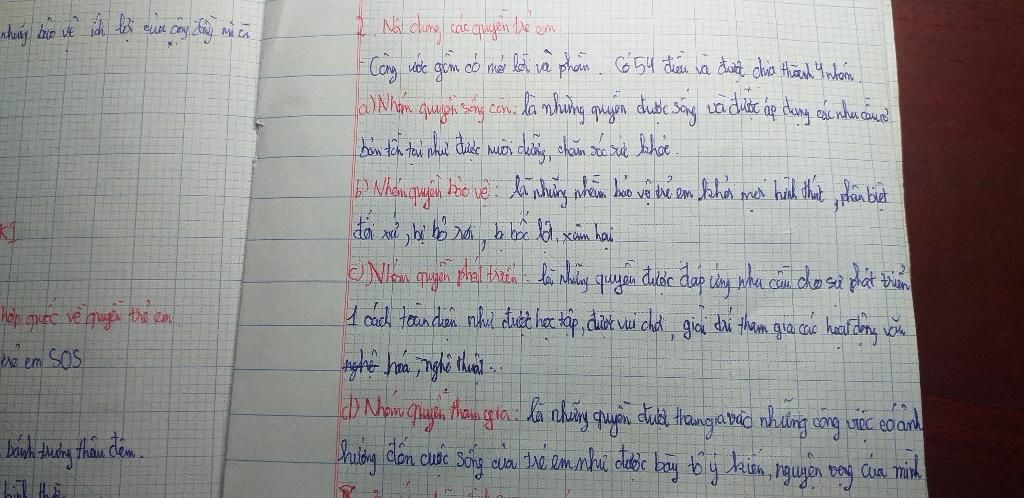 những bảo vệ ích lợi của cộng đồng mà cả
hợp quốc về quyền trẻ em.
trẻ em SOS
bánh trưng thâu đêm.
2. Nội dung các quyền trẻ em
- Công ước gồm có mở lời và phần. Có 54 điều và được chia thành 4 nhóm.
a) Nhóm quyền sống còn: là những quyền được sống và được áp dụng các nhu cầu cơ
bản tồn tại như được nuôi dưỡng, chăm sóc sức khỏe.
b) Nhóm quyền bảo vệ: là những nhằm bảo vệ trẻ em khỏi mọi hình thức, phân biệt
đối xử, bị bỏ rơi, bị bóc lột, xâm hại
c) Nhóm quyền phát triển: là những quyền được đáp ứng nhu cầu cho sự phát triển
1 cách toàn diện như được học tập, được vui chơi, giải trí tham gia các hoạt động văn
nghệ hoá, nghệ thuật...
d) Nhóm quyền tham gia: là những quyền được tham gia vào những công việc có ảnh
hưởng đến cuộc sống của trẻ em như được bày tỏ ý kiến, nguyện vọng của mình